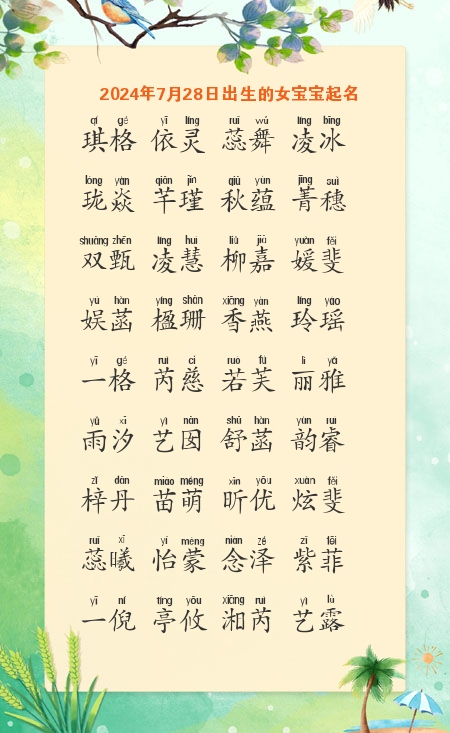 2024年7月28日出生的女宝宝起名
qí gé yī líng ruǐ wǔ líng bīng
琪格 依灵 蕊舞 凌冰
lóng yàn qiān jǐn qiū yùn jīng suì
珑焱 芊瑾 秋蕴 菁穗
shuāng zhēn líng huì liǔ jiā yuàn fěi
双甄 凌慧 柳嘉 媛斐
yú hàn yíng shān xiāng yàn líng yáo
娱菡 楹珊 香燕 玲瑶
yī gé ruì cí ruò fú lì yǎ
一格 芮慈 若芙 丽雅
yǔ xī yì nān shū hàn yùn ruì
雨汐 艺囡 舒菡 韵睿
zǐ dān miáo méng xīn yōu xuàn fěi
梓丹 苗萌 昕优 炫斐
ruǐ xī yí méng niàn zé zǐ fēi
蕊曦 怡蒙 念泽 紫菲
yī ní tíng yōu xiāng ruì yì lù
一倪 亭攸 湘芮 艺露